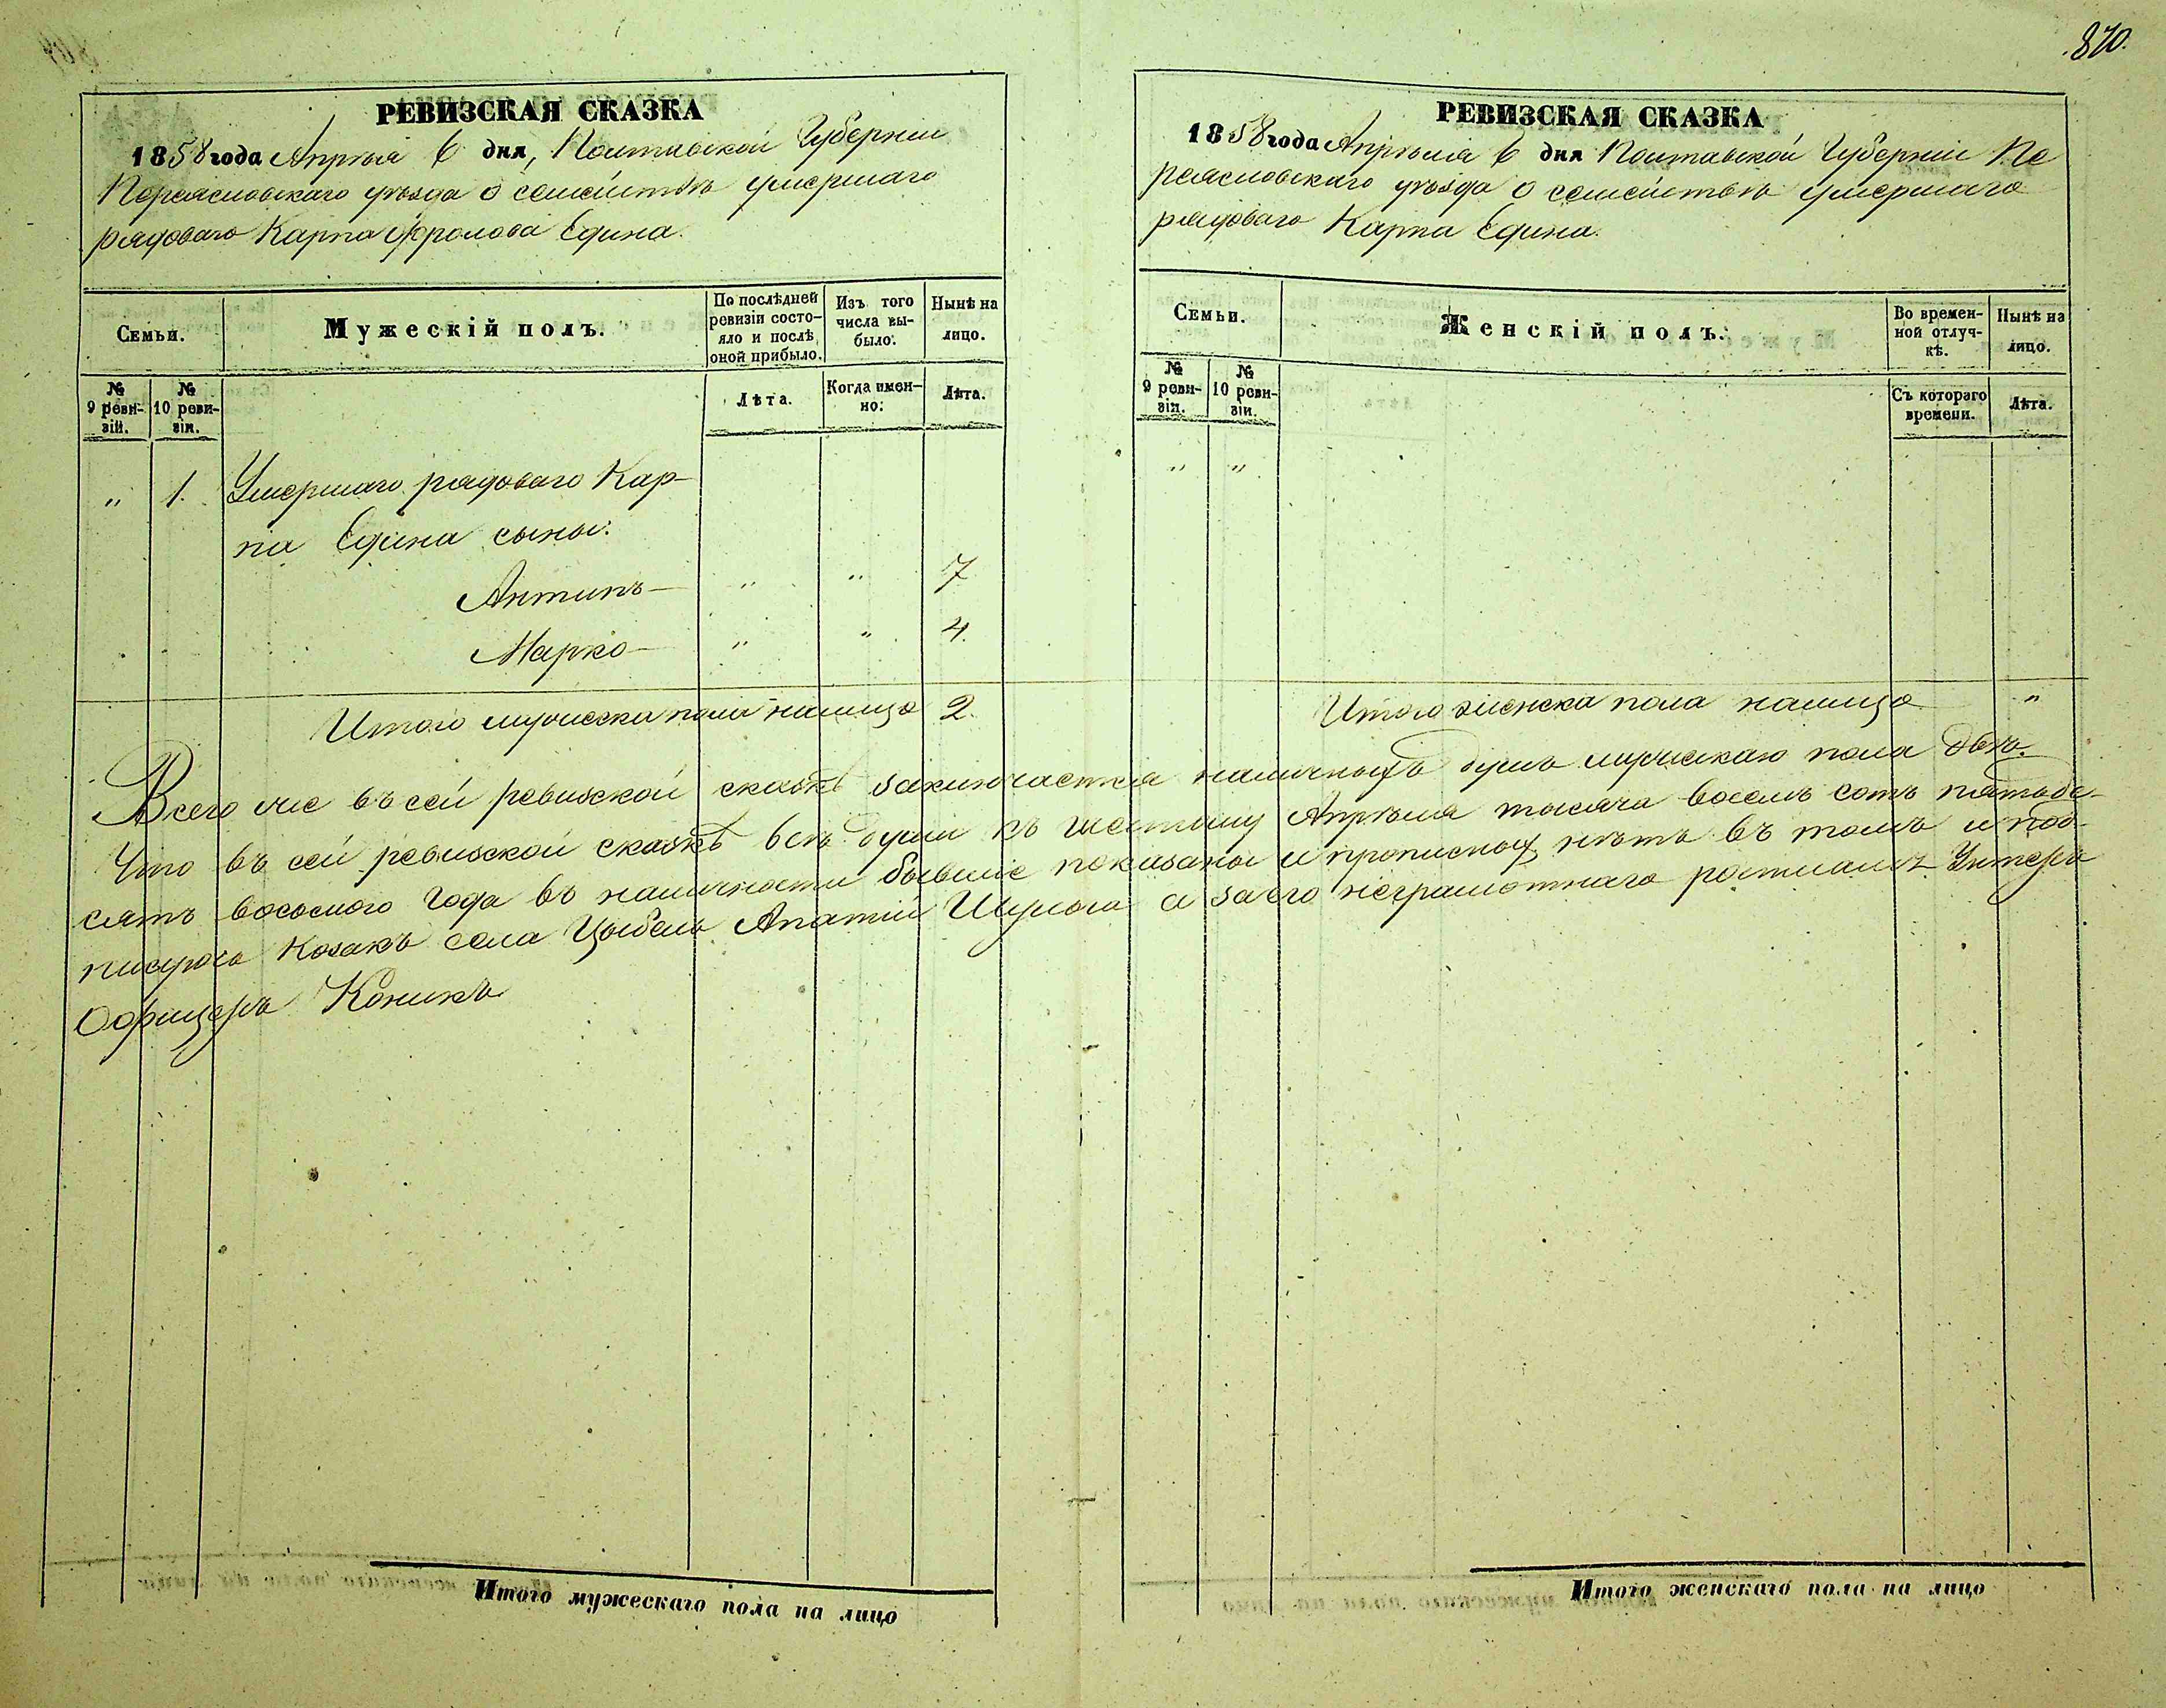 870.
РЕВИЗСКАЯ СКАЗКА
1858 года Апреля 6 дня, Полтавской Губернии
Переясловскаго уѣзда о семействѣ умершаго
рядоваго Карпа Фролова Едина.
Семьи.
Мужескій полъ.
По послѣдней ревизіи состояло и послѣ оной прибыло.
Изъ того числа выбыло.
Нынѣ на лицо.
№ 9 ревизіи.
№ 10 ревизіи.
Лѣта.
Когда именно.
Лѣта.
„ 1. Умершаго рядоваго Кар-
па Едина сыны:
Антипъ — „ „ 7
Марко — „ „ 4.
Итого мужеска пола налицо 2.
РЕВИЗСКАЯ СКАЗКА
1858 года Апрѣля 6 дня Полтавской Губерніи Пе
реясловскаго уѣзда о семействѣ умершаго
рядоваго Карпа Едина.
Семьи.
Женскій полъ.
Во временной отлучкѣ.
Нынѣ на лицо.
№ 9 ревизіи.
№ 10 ревизіи.
Съ котораго времени.
Лѣта.
„ „
Итого женска пола налицо „
Всего же въ сей ревизской сказкѣ заключается наличныхъ душъ мужескаго пола двѣ.
Что въ сей ревизской сказкѣ всѣ души къ шестому Апрѣля тысяча восемь сотъ пятьде-
сятъ восьмого года въ наличности бывшіе показаны и прописныхъ нѣтъ въ томъ и под-
писуюсь Козакъ села Цыбель а за его неграмотнаго Унтеръ
Офицеръ Коникъ
Итого мужескаго пола на лицо
Итого женскаго пола на лицо